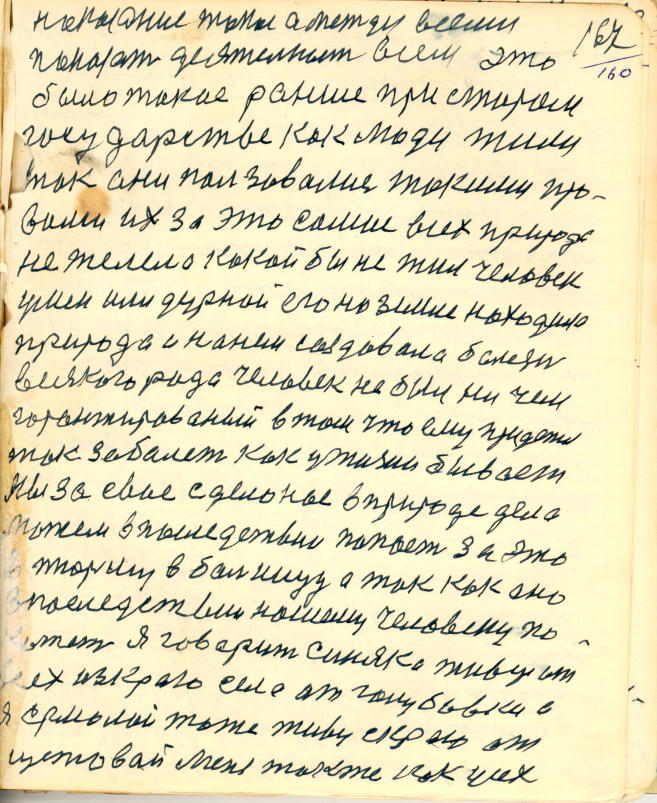 167
160
наказание тоже а между всеми
показат деятелност всем это
было такое раньше при старом
государстве как люди жили
так они ползовалис такими пра-
вами их за это самое всех природа
не жалела какой бы не жил человек
умен или дурной его на земле находила
природа и на нем создовала болезн
всякого рода человек не был ни чем
горантированый в том что ему придется
так заболет как у жизни бывает
мы за свое сделоное в природе дела
можем в последствии попаст за это
в тюрму в болницу а так как оно
последствии нашему человеку по
Я говорит синяка живу от
всех из краю села от голубовки а
я ермолой тоже живу скраю от
меня также как у всех